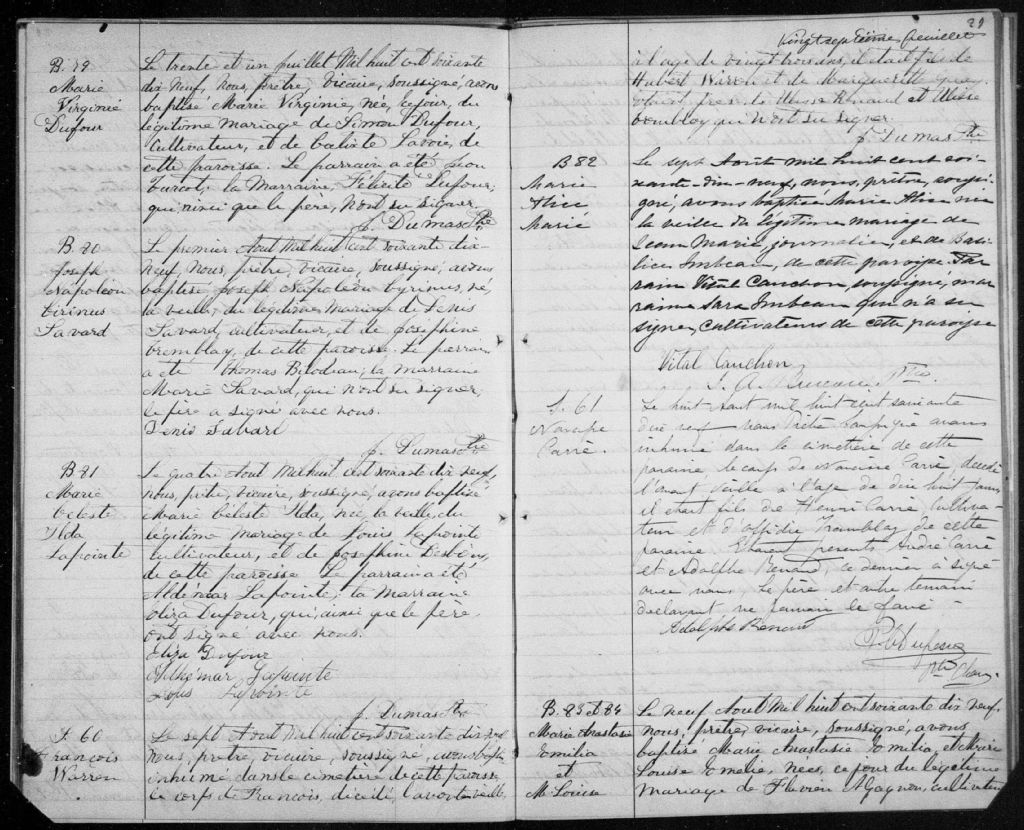 B. 79
Marie
Virginie
Dufour
Le trente et un juillet Mil huit cent soixante
dix-Neuf, Nous, prêtre, vicaire, soussigné, avons
baptisé Marie Virginie, Née, ce jour, du
légitime mariage de Simon Dufour,
Cultivateur, et de Caliste Lavoie, de
cette paroisse. Le parrain a été
Turcot; la Marraine, Félicité Dufour,
qui, ainsi que le père, N'ont su signer.
J. Dumas Ptre
B. 80
Joseph
Napoléon
Cirinus
Savard
Le premier Aout Mil huit cent soixante dix-
Neuf, Nous, prêtre, vicaire, soussigné, avons
baptisé Joseph Napoléon Cyrinus, né,
la veille, du légitime Mariage de Denis
Savard, cultivateur, et de Josephine
Tremblay, de cette paroisse. Le parrain
a été Thomas Bilodeau; la marraine
Marie Savard, qui n'ont su signer,
le père a signé avec nous.
Denis Savard
J. Dumas Ptre
B. 81
Marie
Céleste
Ilda
Lapointe
Le quatre Aout Mil huit cent soixante dix neuf,
nous, prêtre, vicaire, soussigné, avons baptisé
Marie Céleste Ilda, née, la veille, du
légitime Mariage de Louis Lapointe
Cultivateur, et de Josephine Desbiens,
de cette paroisse. Le parrain a été
Aldémar Lapointe; la Marraine
Eliza Dufour, qui, ainsi que le père,
ont signé avec nous.
Eliza Dufour
Lapointe
Louis Lapointe
J. Dumas Ptre
S. 60
François
Warren
Le sept Aout Mil huit cent soixante dix neuf
nous, prêtre, vicaire, soussigné, avons
inhumé dans le cimetière de cette paroisse
le corps de François, décédé, l'avant veille,
29
Vingt septième feuillet
à l'age de vingt trois ans, il était fils de
Hubert Warren et de Marguerite
présents Ulysse Renaud et Ulisse
Tremblay qui n'ont su signer.
J. Dumas Ptre
B 82
Marie
Alice
Marié
Le sept Août mil huit cent soi-
xante-dix-neuf, nous, prêtre, soussi-
gné, avons baptisé Marie Alice née
la veille du légitime mariage de
Jean Marié, journalier, et de Basi-
lice Imbeau, de cette paroisse. Par-
rain Vital Cauchon, soussigné, mar-
raine Sara Imbeau qui n'a su
signer, cultivateurs de cette paroisse
Vital Cauchon
Ptre.
S. 61
Carré.
Le huit Aout mil huit cent soixante
dix neuf nous Prêtre Soussigné avons
inhumé dans le cimetière de cette
paroisse le corps de Carré, décédé
l'avant veille à l'age de dix huit jours,
il était fils de Henri Carré, Cultiva-
teur et d'Tremblay de cette
paroisse. Etaient presents André Carré
et Adolphe Renaud, ce dernier a signé
avec nous, Le père et autre temoin
declarant ne pouvoir le faire
Adolphe Renaud
Ptre
B. 83 et 84
Marie Anastasie
Emilia
et
M. Louise
Le neuf Aout Mil huit cent soixante dix neuf,
nous, prêtre, vicaire, soussigné, avons
baptisé Marie Anastasie Emilia, et Marie
Louise Emelie, nées, ce jour du légitime
mariage de Flavien A Gagnon, cultivateur